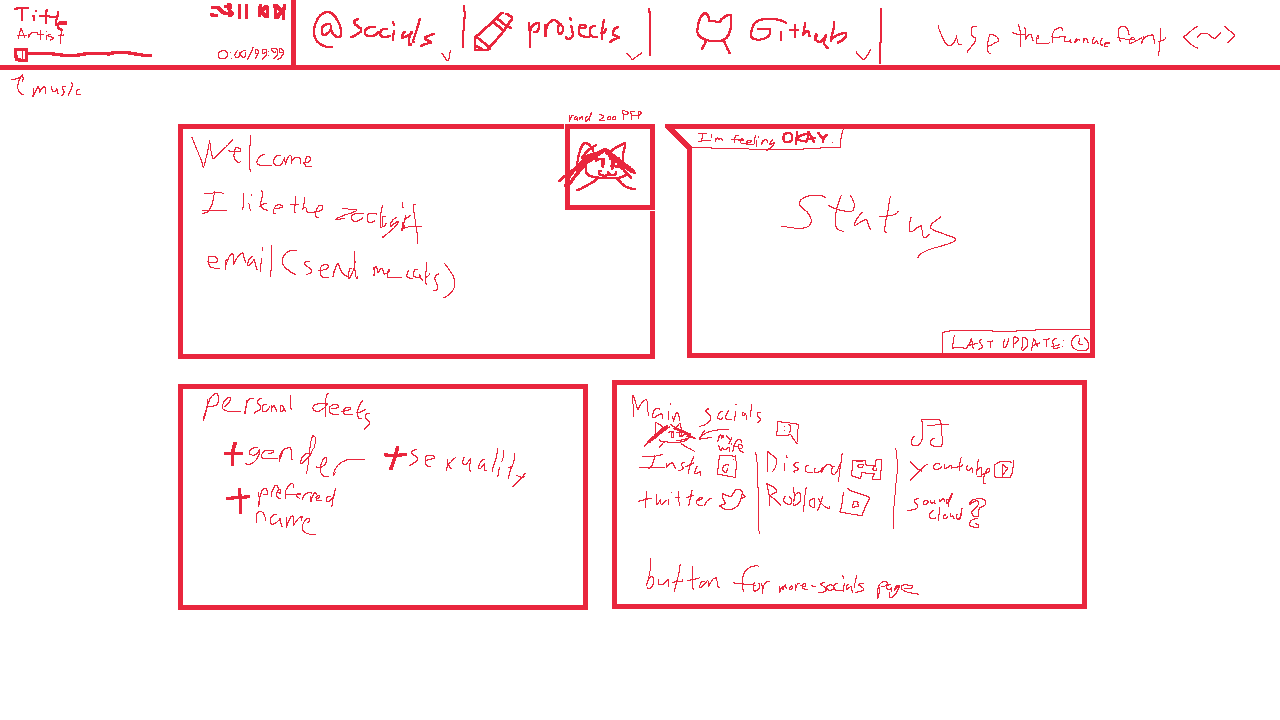 Title
Artist
0:00/99:99
@socials
projects
Github
use the furnace font <~>
↑ music
rand 200 PFP
Welcome
I like the
email (send me cats)
I'm feeling OKAY.
Status
LAST UPDATE:
personal deets
+gender +sexuality
+preferred
name
Main socials
my
wife
Insta Discord youtube
twitter Roblox sound
cloud?
button for more-socials page